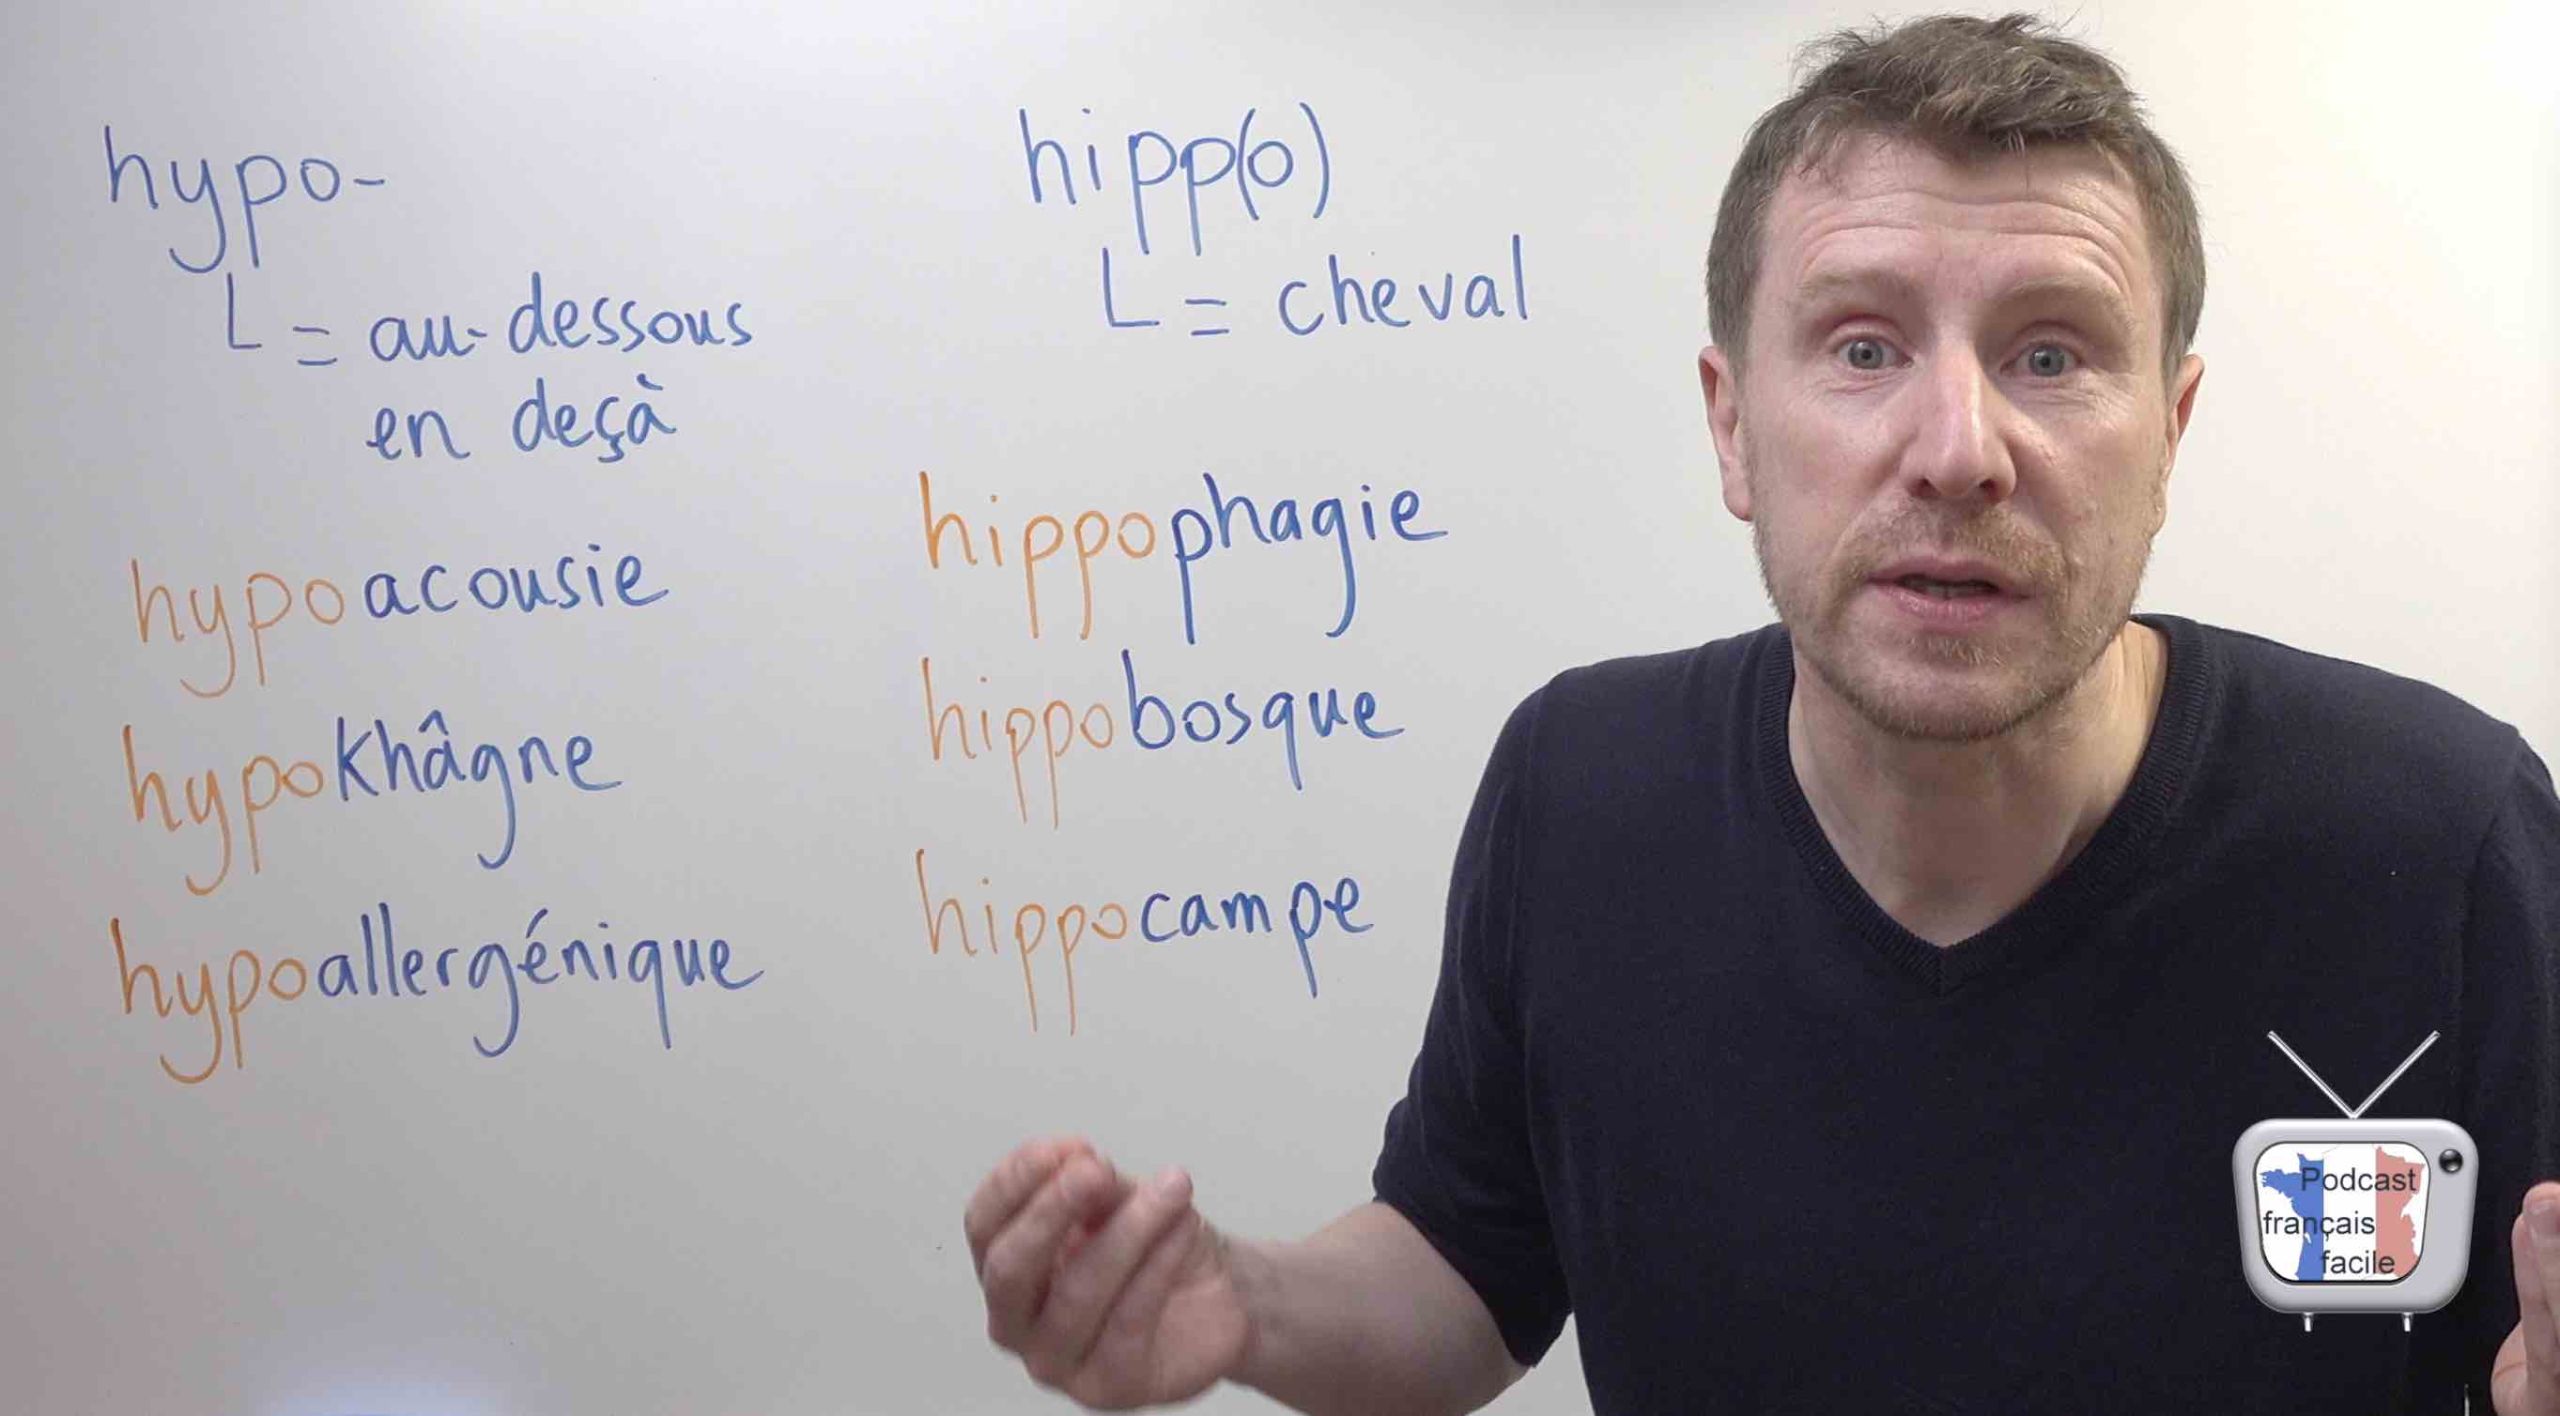 hypo-
L = au-dessous
en deçà
hypoacousie
hypokhâgne
hypoallergénique
hipp(o)
L = cheval
hippophagie
hippobosque
hippocampe
Podcast
français
facile